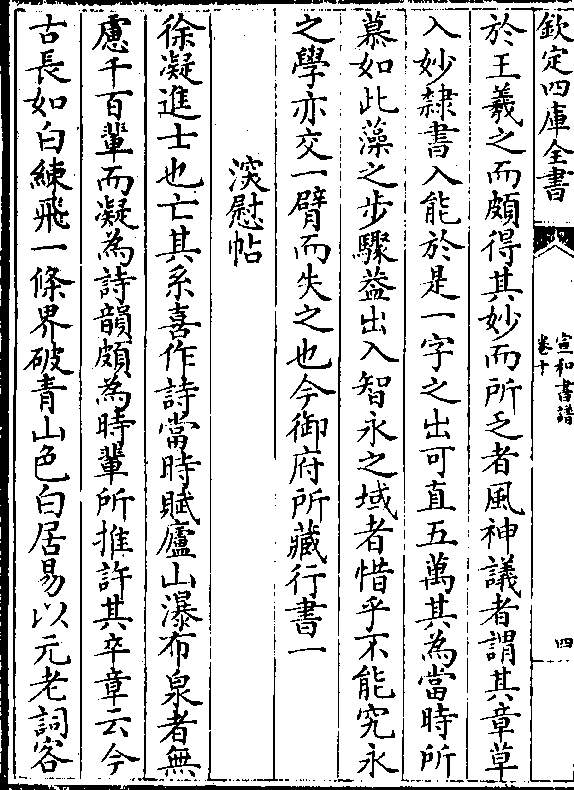 欽定四庫全書
宣和書譜
卷十
四
於王羲之而頗得其妙而所乏者風神議者謂其章草
入妙隸書入能於是一字之出可直五萬其為當時所
慕如此藻之步驟益出入智永之域者惜乎不能究永
之學亦交一臂而失之也今御府所藏行書一
深慰帖
徐凝進士也亡其系喜作詩當時賦廬山瀑布泉者無
慮千百輩而凝為詩韻頗為時輩所推許其卒章云今
古長如白練飛一條界破青山色白居易以元老詞客